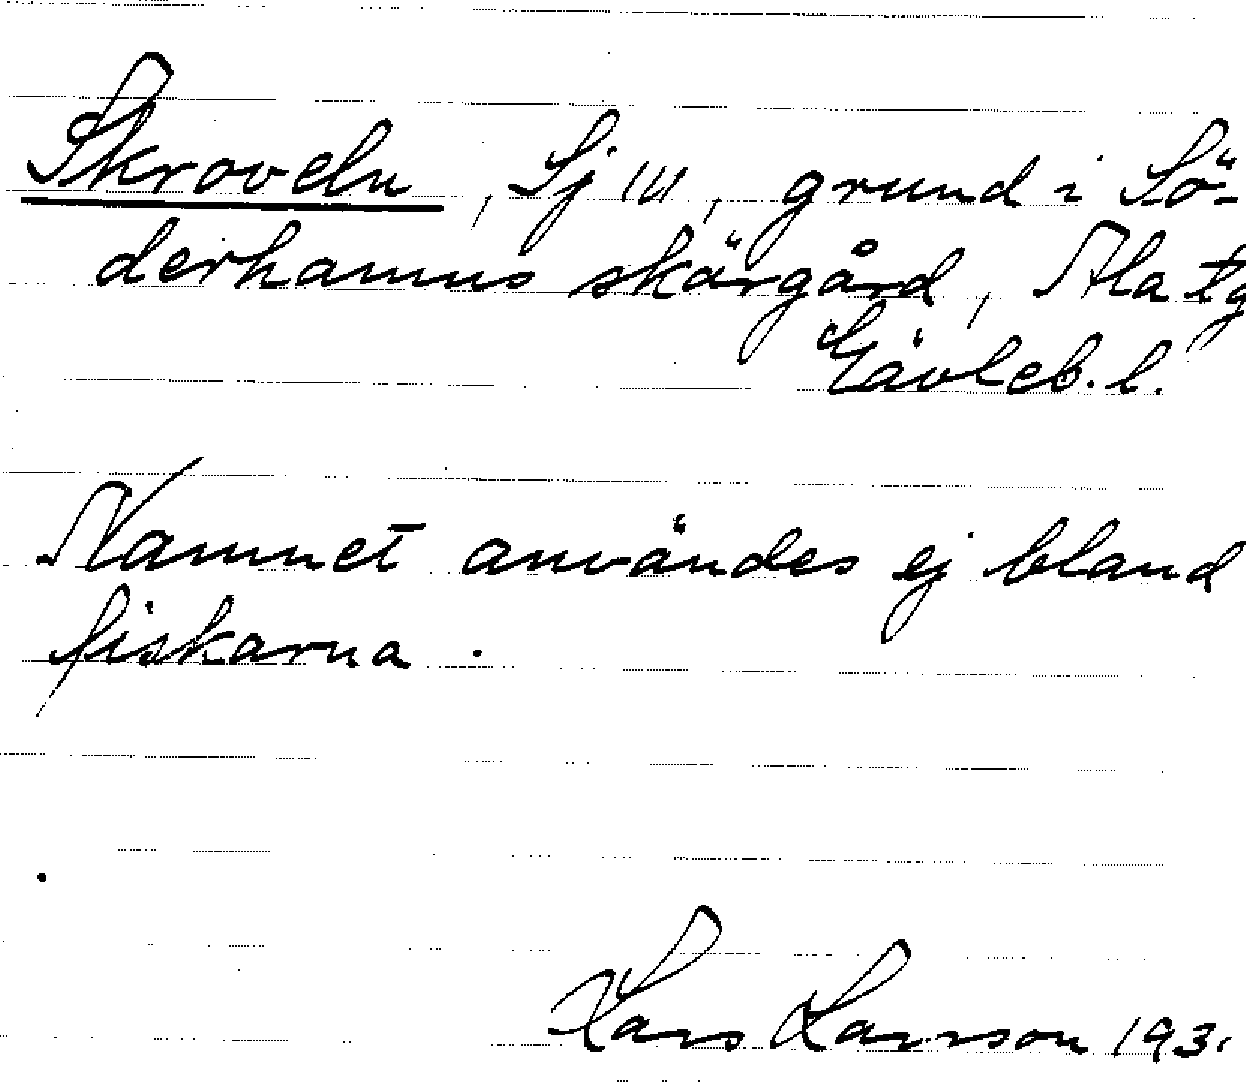 Skroveln, Sj 141, grund i Sö-
derhamns skärgård, Ala tg
Gävleb. l.
Namnet användes ej bland
fiskarna.
Lars Larsson 193.